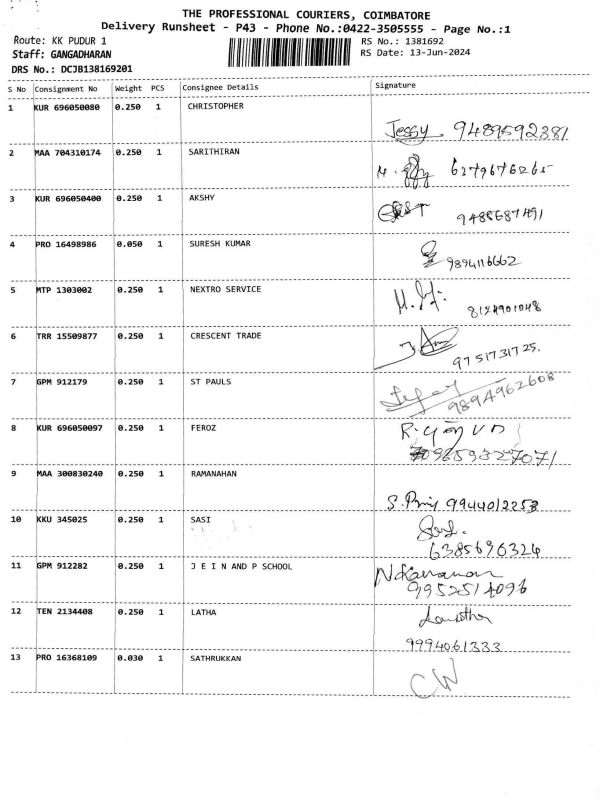 THE PROFESSIONAL COURIERS, COIMBATORE
Delivery Runsheet - P43 - Phone No.:0422-3505555 - Page No.:1
Route: KK PUDUR 1
RS No.: 1381692
Staff: GANGADHARAN
RS Date: 13-Jun-2024
DRS No.: DCJB138169201
S No Consignment No Weight PCS Consignee Details Signature
1 KUR 696050080 0.250 1 CHRISTOPHER
Jessy. 9489592381
2 MAA 704310174 0.250 1 SARITHIRAN
6279676265
3 KUR 696050400 0.250 1 AKSHY
9488687491
4 PRO 16498986 0.050 1 SURESH KUMAR
9894116662
5 MTP 1303002 0.250 1 NEXTRO SERVICE
8124901048
6 TRR 15509877 0.250 1 CRESCENT TRADE
9751731725.
7 GPM 912179 0.250 1 ST PAULS
9894962608
8 KUR 696050097 0.250 1 FEROZ
9659327071
9 MAA 300830240 0.250 1 RAMANAHAN
S. Priy 9944012253
10 KKU 345025 0.250 1 SASI
6385696324
11 GPM 912282 0.250 1 J E I N AND P SCHOOL
N Kannan
9952514096
12 TEN 2134408 0.250 1 LATHA
9994061333
13 PRO 16368109 0.030 1 SATHRUKKAN